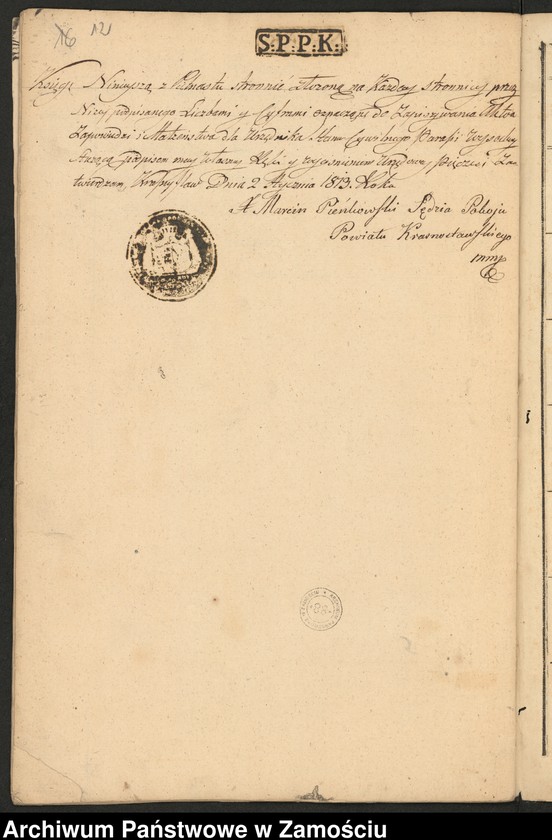 16 12
S.P.P.K.
Księgę Ninieyszą z Piętnastu stronnic złożoną na Każdey stronnicy przez
Niżey podpisanego Liczbami y Cyframi oznaczoną do Zapisywania Aktów
Zapowiedzi i Małżeństwa dla Urzędnika Stanu Cywilnego Parafii
podpisem mey własney Ręki y wycisnieniem Urzędowey Pieczęci Za
twierdzam, w Krasnymstaw Dnia 2 Stycznia 1813. Roku
X Marcin Pieńkowski Sędzia Pokoju
Powiatu Krasnostawskiego
mmp
Archiwum Państwowe w Zamościu